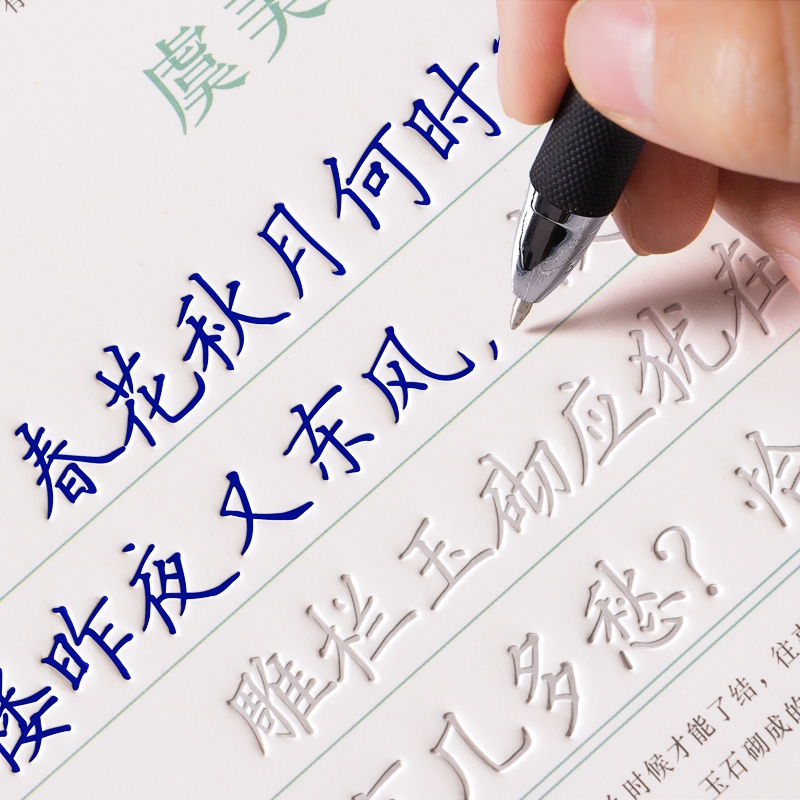 虞美
春花秋月何时
楼昨夜又东风，
雕栏玉砌应犹在
几多愁？ 恰
时候才能了结，往
玉石砌成的